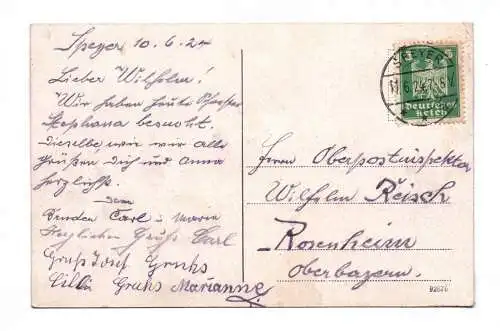 Speyer 10.6.24
Lieber Wilhelm!
Wir haben heute
Stephana besucht.
Dieselbe, wie wir alle
Grüßen Dich und Anna
herzlichst
Carl u. Marie
Herzlichen Gruß Carl
Gruß Josef Gruhs
Cilli Gruhs Marianne
SPEYER
Deutsches
Reich
Herrn Oberpostinspektor
Wilhelm Reisch
Rosenheim
Oberbayern.
B2676